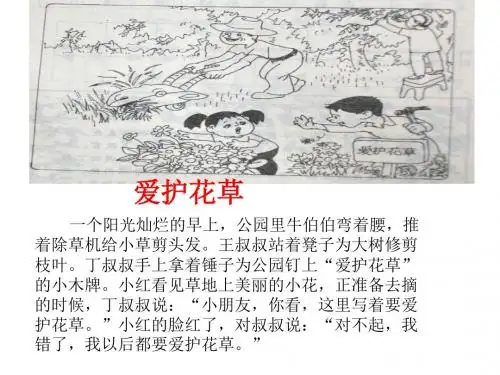 爱护花草
爱护花草
一个阳光灿烂的早上，公园里牛伯伯弯着腰，推
着除草机给小草剪头发。王叔叔站着凳子为大树修剪
枝叶。丁叔叔手上拿着锤子为公园钉上“爱护花草”
的小木牌。小红看见草地上美丽的小花，正准备去摘
的时候，丁叔叔说：“小朋友，你看，这里写着要爱
护花草。”小红的脸红了，对叔叔说：“对不起，我
错了，我以后都要爱护花草。”